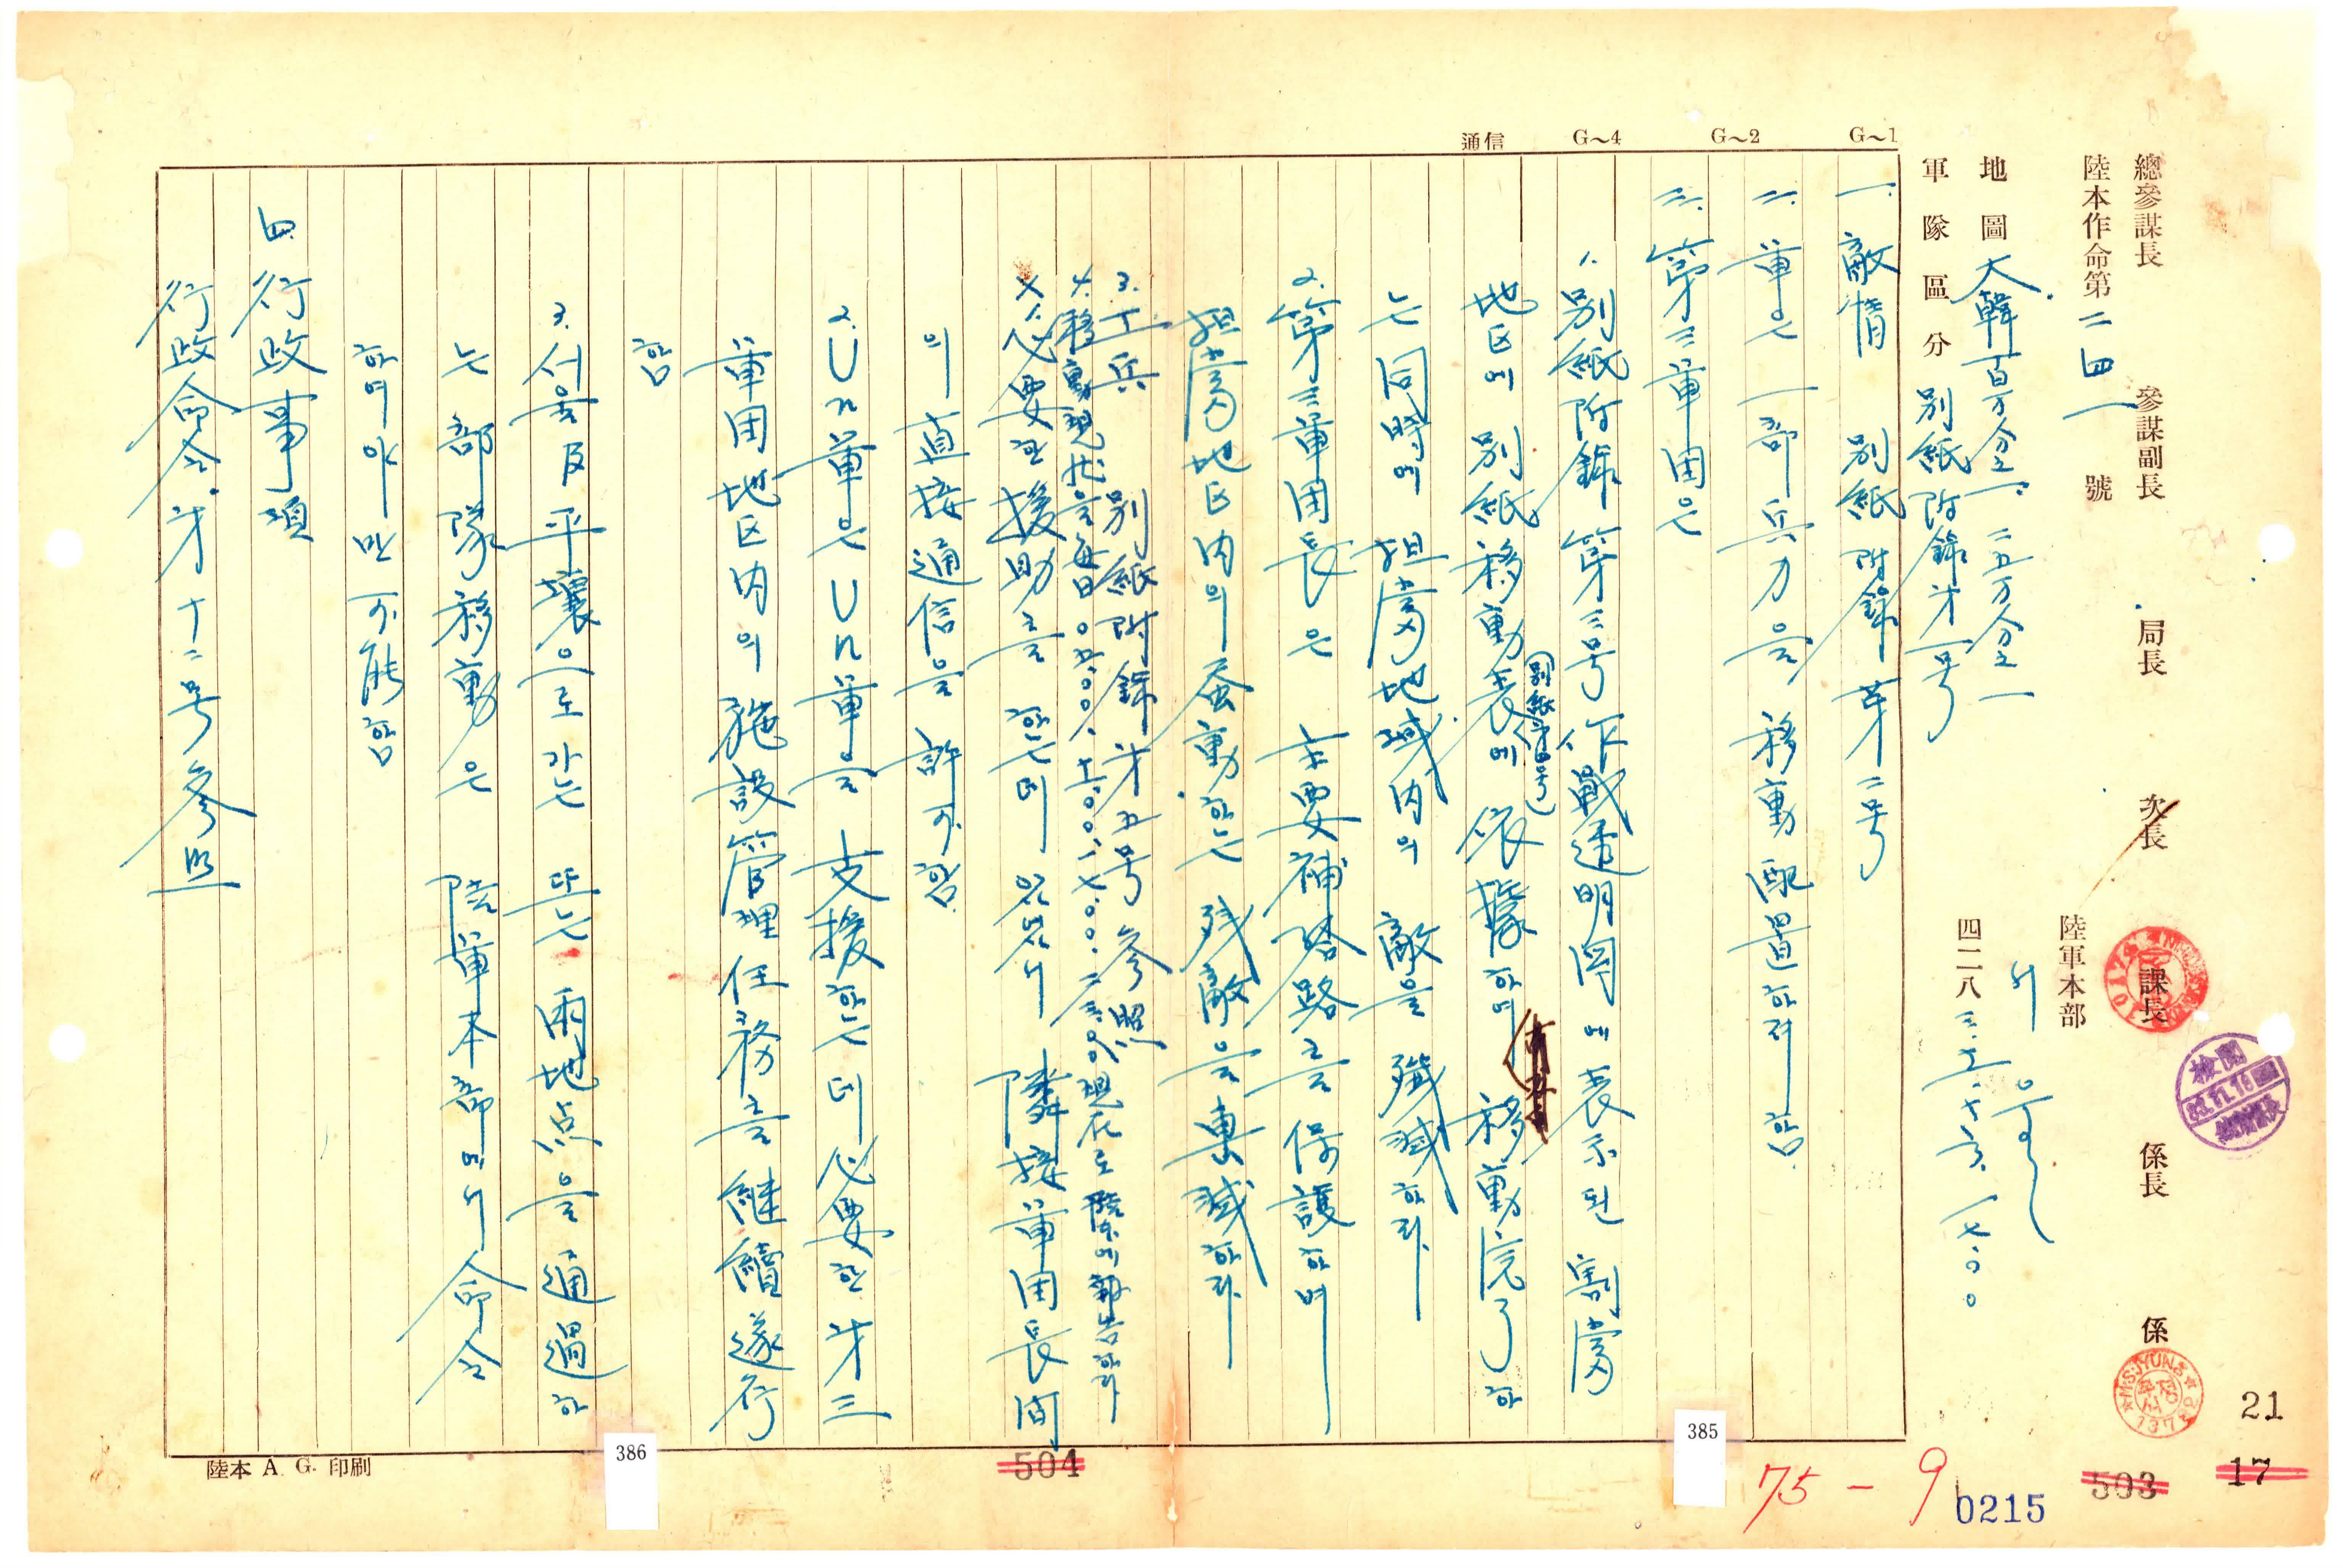 總參謀長 參謀副長 局長 次長 課長 係長 係
陸本作命第二四一號
陸軍本部
地圖 大韓百万分之一. 二五万分之一
서울
四二八三.一〇.一六. 一七:〇〇
軍隊區分 別紙附錄才一号
G~1
G~2
G~4
通信
一. 敵情 別紙 附錄 第二号
二. 軍은 一部 兵力을 移動 配置하려 함.
三. 第三軍団은
1. 別紙 附錄 第三号 作戰透明図에 表示된 割當
地区에 別紙 移動表에 依據하여 移動完了하
(別紙才四号)
는 同時에 担當地域内의 敵을 殲滅하라.
2. 第三軍団長은 主要補給路를 保護하며
担當地区内의 蚕動하는 残敵을 剿滅하라.
3. 工兵 別紙附錄才五号 參照
4. 移動現状을 每日 現在로 陸本에 報告하라
X. 1. 必要한 援助를 하는데 있어서 隣接軍団長间
의 直接通信을 許可함.
2. Un軍은 Un軍을 支援하는데 必要한 才三
軍団地区内의 施設管理任務를 継續遂行
함
3. 서울 及 平壤으로 가는 또는 兩地点을 通過하
는 部隊移動은 陸軍本部에서 命令
하여야만 可能함
四. 行政事項
行政命令 才十二号 參照
陸本 A. G. 印刷
386
504
385
75-9
0215
503
17
21
檢閱
M.S.JYUNG